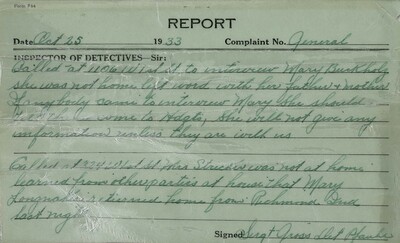 REPORT
Date Oct 25 1933 Complaint No. General
INSPECTOR OF DETECTIVES - Sir:
Called at 1106 W St to interview Mary Burkholz
She was not home left word with her father & mother
if anybody came to interview Mary She should
come to Hdqts, She will not give any
information unless they are with us
Called at St Mrs was not at home
learned from other parties at house that Mary
returned home from Richmond Ind
last night
Signed Sergt Gross Det